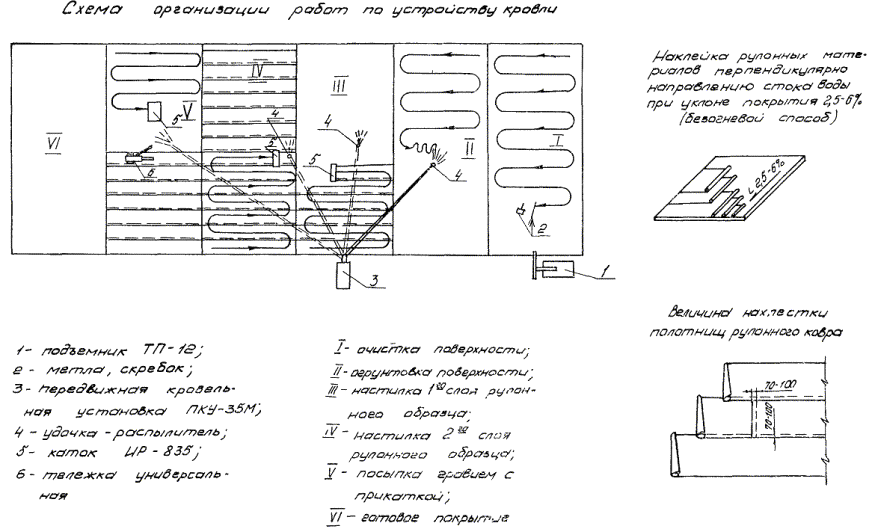 Схема организации работ по устройству кровли
VI
V
IV
III
II
I
5
4
5
6
4
5
4
2
3
1
Наклейка рулонных мате-
риалов перпендикулярно
направлению стока воды
при уклоне покрытия 2,5-6%
(безогневой способ)
2,5-6%
Величина нахлестки
полотнищ рулонного ковра
70-100
70-100
1- подъемник ТП-12;
2- метла, скребок;
3- передвижная кровель-
ная установка ПКУ-35М;
4- удочка-распылитель;
5- каток ИР-835;
6- тележка универсаль-
ная
I- очистка поверхности;
II- огрунтовка поверхности;
III- настилка 1го слоя рулон-
ного образца;
IV- настилка 2го слоя
рулонного образца;
V- посыпка гравием с
прикаткой;
VI- готовое покрытие